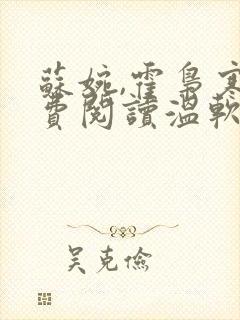 蘇婉,霍梟寒
費閱讀溫軟
吴克儉